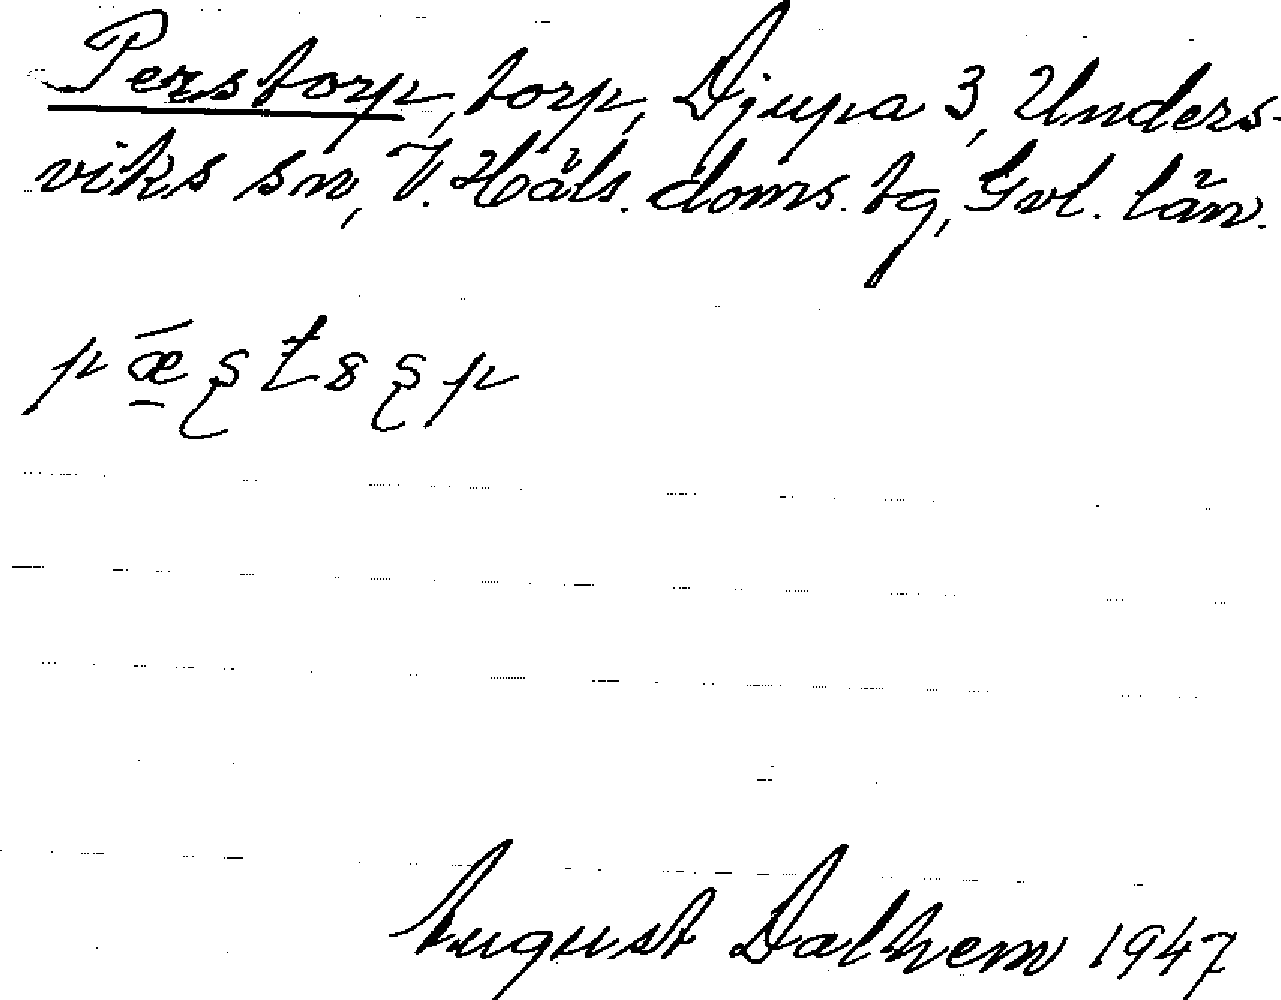 Perstorp, torp, Djupa 3, Unders-
viks sn, V. Häls. doms. tg, Gvl. län.
August Dalhem 1947